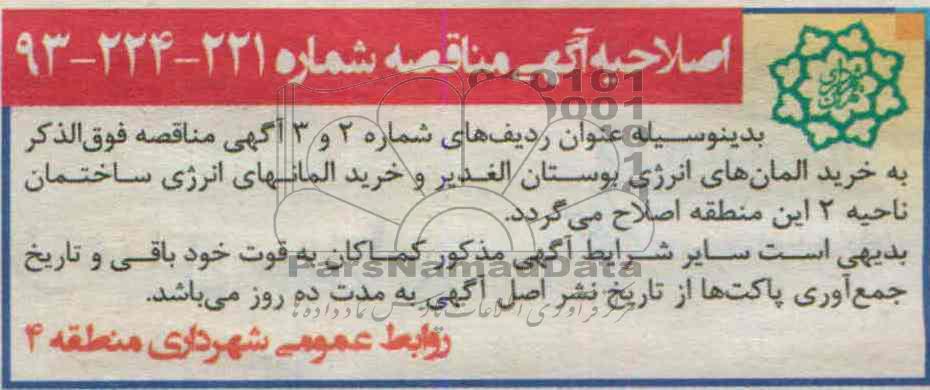 اصلاحیه آگهی مناقصه شماره ۲۲۱-۲۲۴-۹۳
بدینوسیله عنوان ردیف‌های شماره ۲ و ۳ آگهی مناقصه فوق‌الذکر
به خرید المان‌های انرژی بوستان الغدیر و خرید المانهای انرژی ساختمان
ناحیه ۲ این منطقه اصلاح می‌گردد.
بدیهی است سایر شرایط آگهی مذکور کماکان به قوت خود باقی و تاریخ
جمع‌آوری پاکت‌ها از تاریخ نشر اصل آگهی به مدت ده روز می‌باشد.
روابط عمومی شهرداری منطقه ۴
ParsNamadData